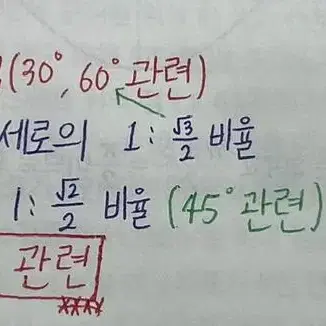 (30°, 60° 관련)
세로의 1 : √3/2 비율
1 : √2/2 비율 (45° 관련)
관련
××××